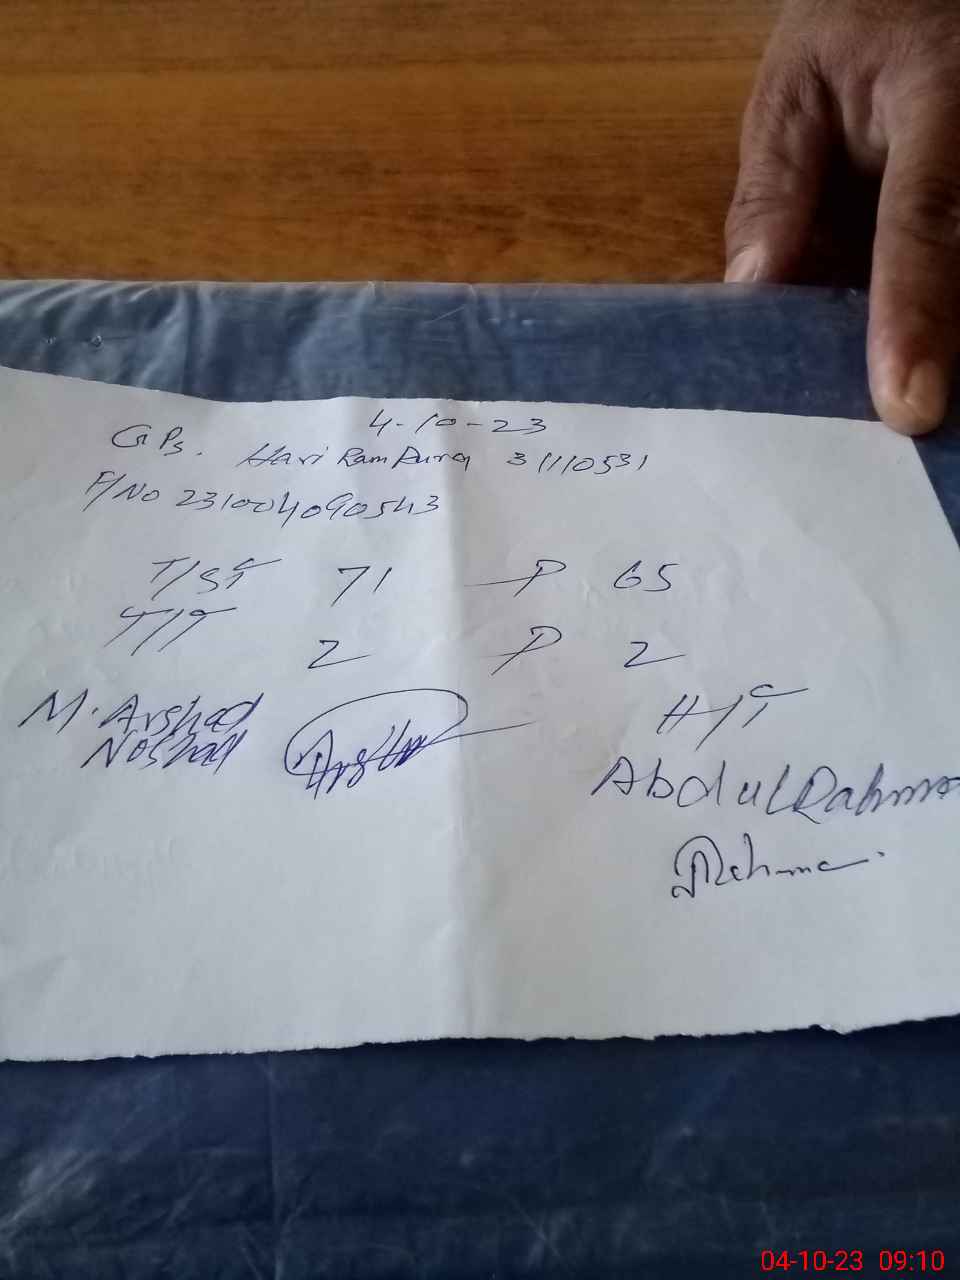 4-10-23
GPs. Hari Ram Pura 31110531
F/No 231004090543
T/ST 71 P 65
T/T 2 P 2
M. Arshad H/T
Noshad
Abdul Rahma
Rehma
04-10-23 09:10